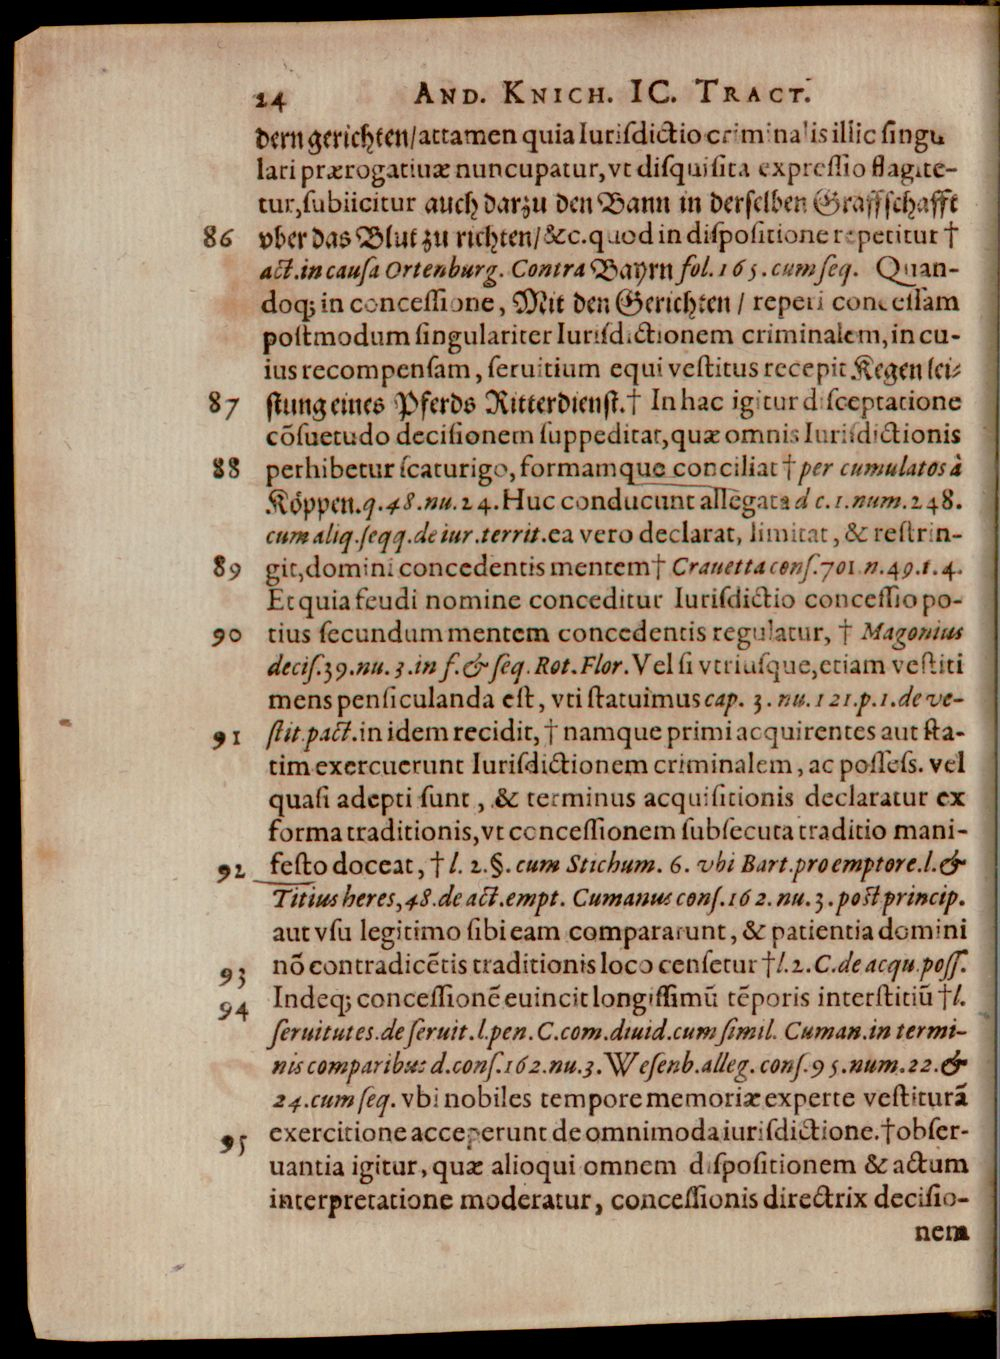 24 AND. KNICH. IC. TRACT.
dern gerichten/attamen quia Iurisdictio criminalis illic singu
lari prærogatiuæ nuncupatur, vt disquisita expressio flagite-
tur, subiicitur auch darzu den Bann in derselben Graffschafft
86 vber das Blut zu richten/&c. quod in dispositione repetitur †
act. in causa Ortenburg. Contra Bayrn fol. 165. cum seq. Quan-
doq; in concessione, Mit den Gerichten / reperi concessam
postmodum singulariter Iurisdictionem criminalem, in cu-
ius recompensam, seruitium equi vestitus recepit Kegen lei-
87 stung eines Pferds Ritterdienst.† In hac igitur disceptatione
cõsuetudo decisionem suppeditat, quæ omnis Iurisdictionis
88 perhibetur scaturigo, formamque conciliat † per cumulatos à
Köppen. q. 48. nu. 24. Huc conducunt allegata d c. 1. num. 248.
cum aliq. seqq. de iur. territ. ea vero declarat, limitat, & restrin-
89 git, domini concedentis mentem † Crauetta cons. 701 n. 49. t. 4.
Et quia feudi nomine conceditur Iurisdictio concessio po-
90 tius secundum mentem concedentis regulatur, † Magonius
decis. 39. nu. 3. in f. & seq. Rot. Flor. Vel si vtriusque, etiam vestiti
mens pensiculanda est, vti statuimus cap. 3. nu. 121. p. 1. de ve-
91 stit. pact. in idem recidit, † namque primi acquirentes aut sta-
tim exercuerunt Iurisdictionem criminalem, ac possess. vel
quasi adepti sunt, & terminus acquisitionis declaratur ex
forma traditionis, vt concessionem subsecuta traditio mani-
92 festo doceat, † l. 2. §. cum Stichum. 6. vbi Bart. pro emptore. l. &
Titius heres, 48. de act. empt. Cumanus cons. 162. nu. 3. post princip.
aut vsu legitimo sibi eam compararunt, & patientia domini
93 nõ contradicẽtis traditionis loco censetur † l. 2. C. de acqu. poss.
94 Indeq; concessionẽ euincit longissimũ tẽporis interstitiũ † l.
seruitutes. de seruit. l. pen. C. com. diuid. cum simil. Cuman. in termi-
nis comparibus d. cons. 162. nu. 3. Wesenb. alleg. cons. 95. num. 22. &
24. cum seq. vbi nobiles tempore memoriæ experte vestiturã
95 exercitione acceperunt de omnimoda iurisdictione. † obser-
uantia igitur, quæ alioqui omnem dispositionem & actum
interpretatione moderatur, concessionis directrix decisio-
nem